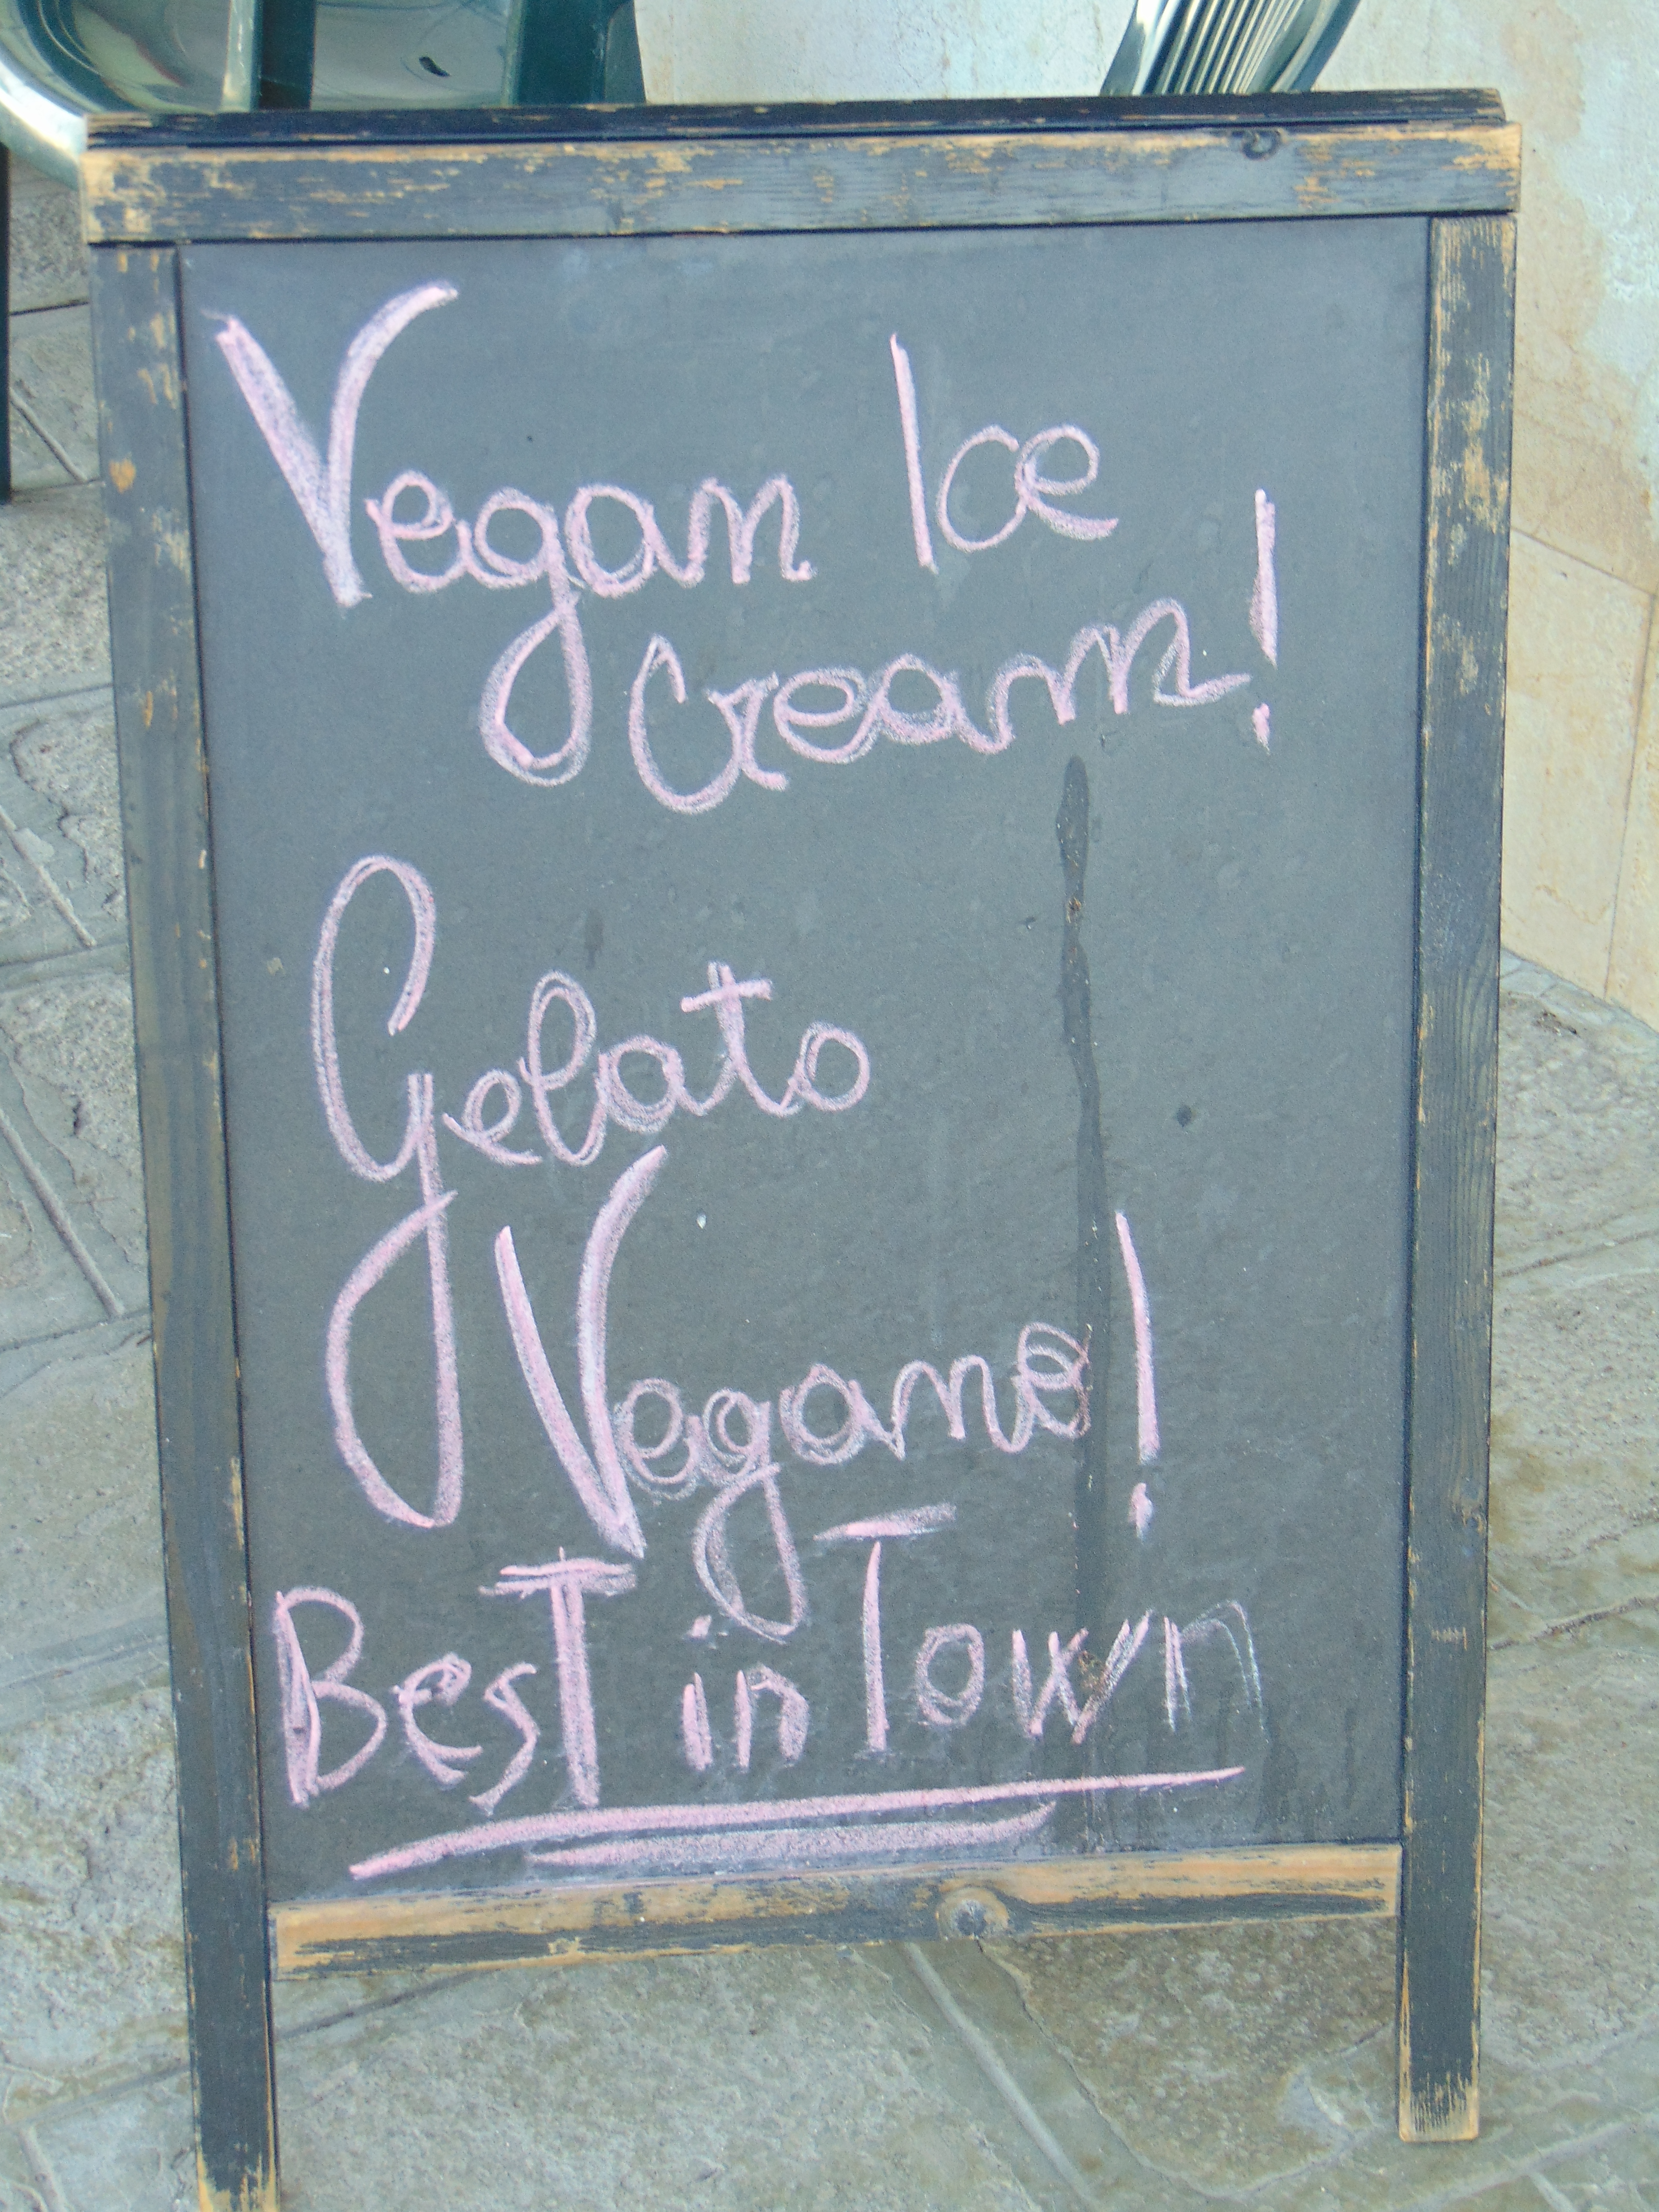 Vegan Ice
Cream!
Gelato
Vegano!
BesT in Town